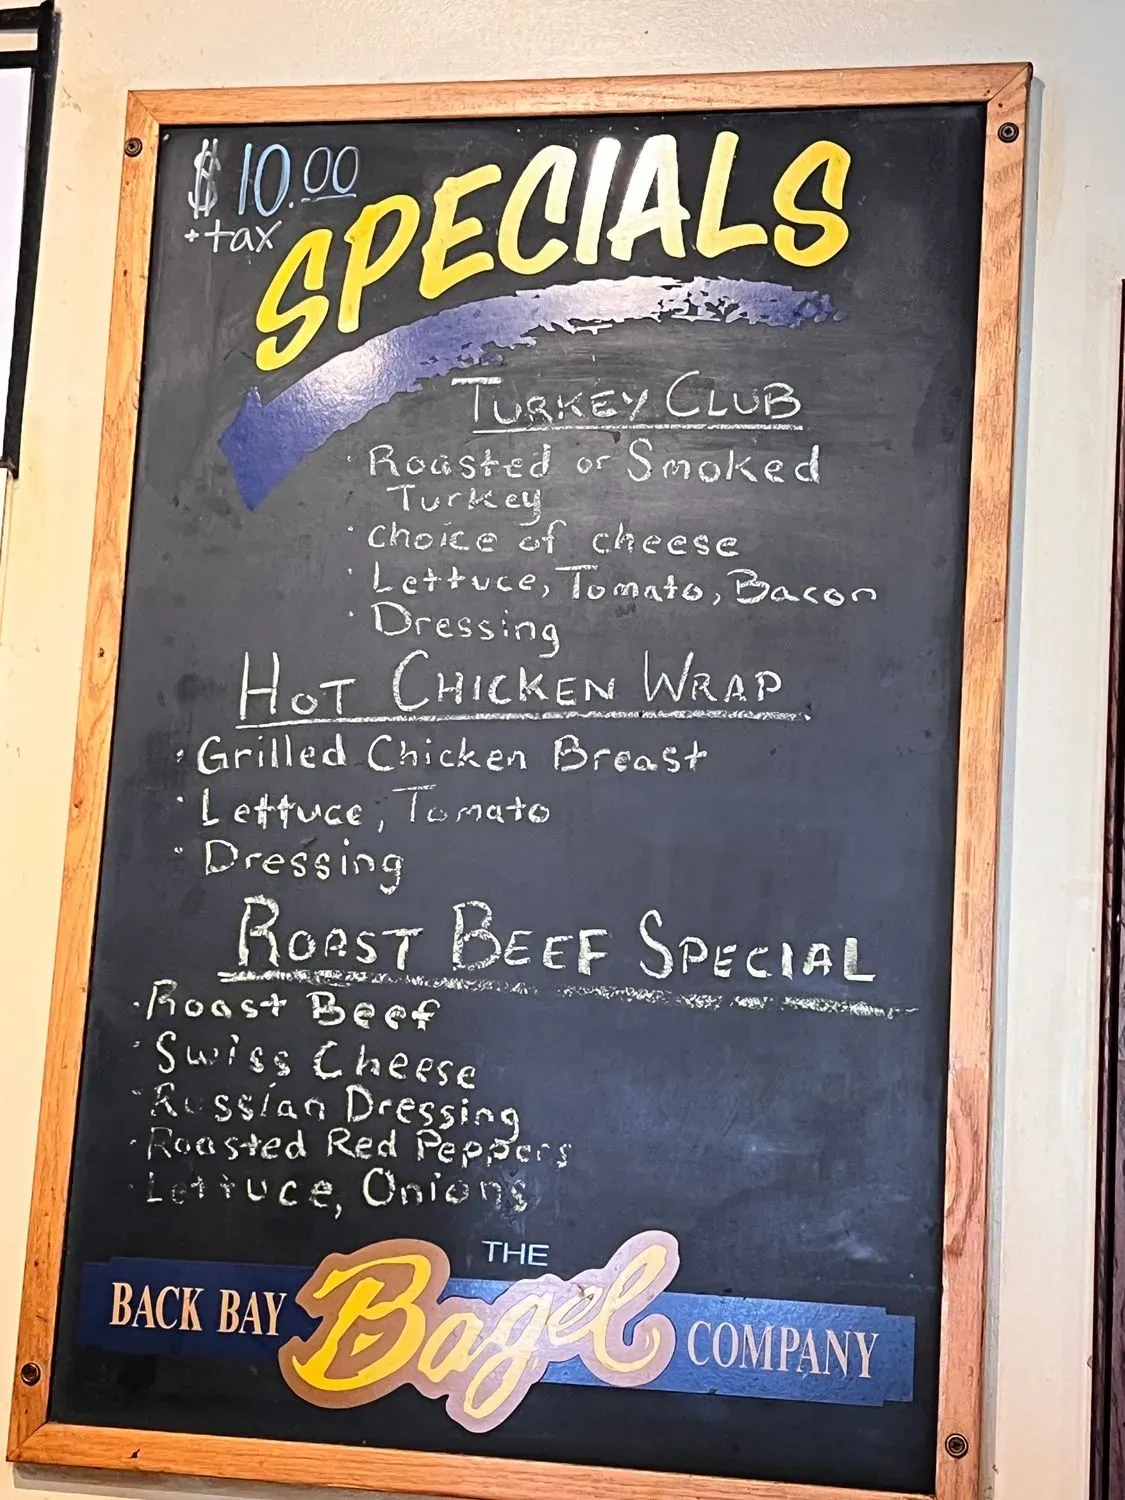 $10.00
+tax
SPECIALS
TURKEY CLUB
· Roasted or Smoked
Turkey
· choice of cheese
· Lettuce, Tomato, Bacon
· Dressing
HOT CHICKEN WRAP
· Grilled Chicken Breast
· Lettuce, Tomato
· Dressing
ROAST BEEF SPECIAL
· Roast Beef
· Swiss Cheese
· Russian Dressing
· Roasted Red Peppers
· Lettuce, Onions
THE
BACK BAY Bagel COMPANY